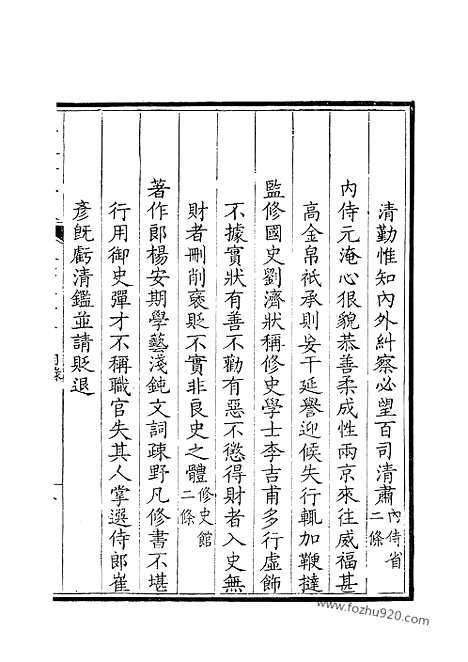 清勤惟知內外糾察必望百司清肅內侍省二條
內侍元淹心很貌恭善柔成性兩京來往威福甚
高金帛祇承則妄干延譽迎候失行輒加鞭撻
監修國史劉濟狀稱修史學士李吉甫多行虛飾
不據實狀有善不勸有惡不懲得財者入史無
財者刪削褒貶不實非良史之體修史館二條
著作郎楊安期學藝淺鈍文詞疎野凡修書不堪
行用御史彈才不稱職官失其人掌選侍郎崔
彥旣虧清鑑並請貶退
目錄
www.fozhu920.com